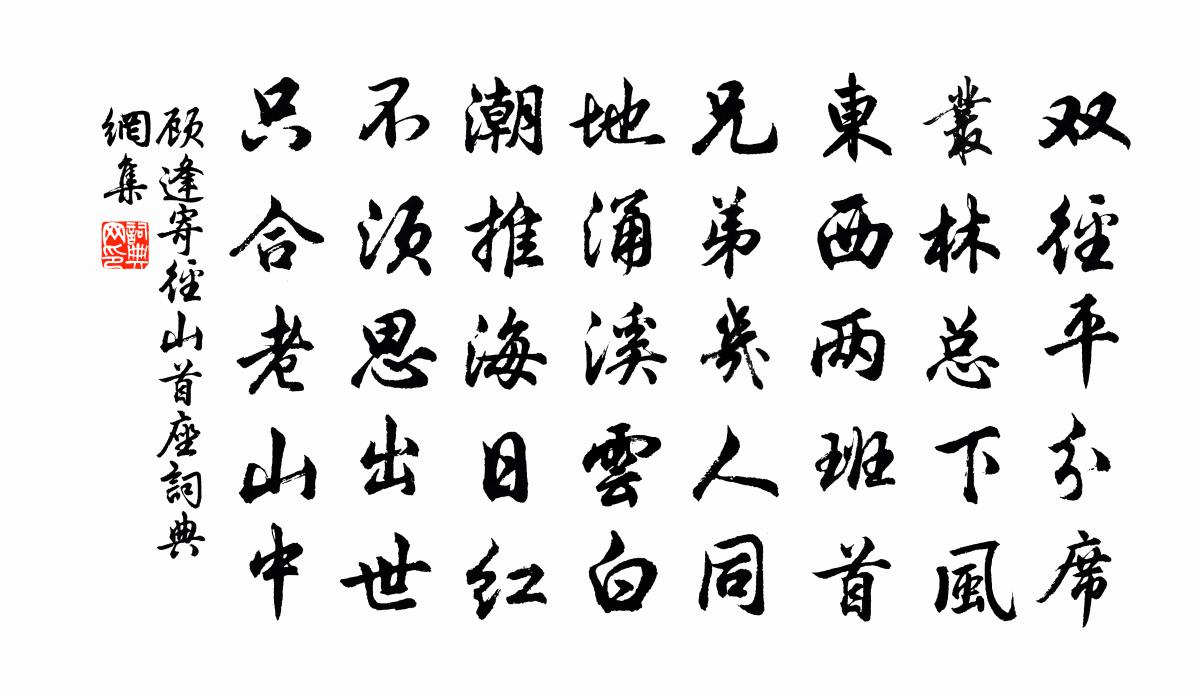 双徑平分席
叢林总下風
東西两班首
兄弟幾人同
地涌溪雲白
潮推海日红
不須思出世
只合老山中
顾逢寄徑山首座詞典
網集
詞典
网印